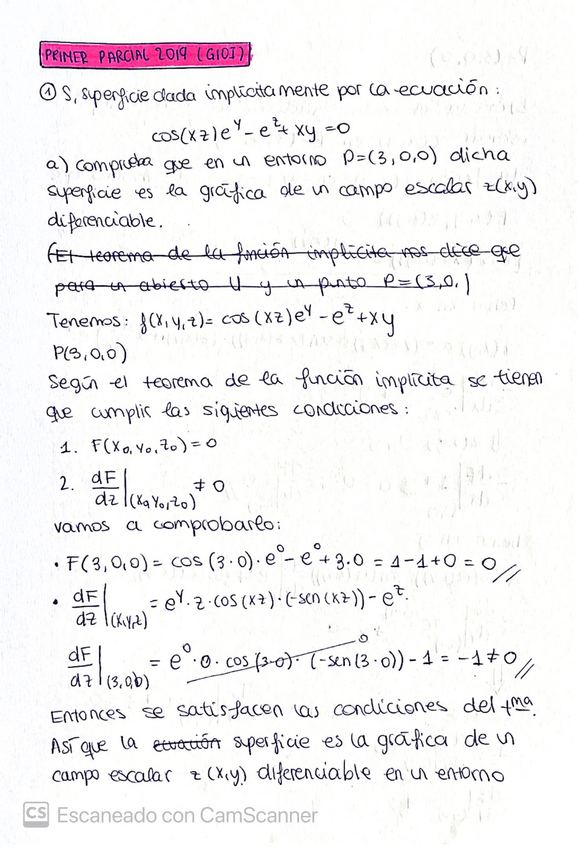 PRIMER PARCIAL 2019 (GIOI)
① S, superficie dada implícitamente por la ecuación:
cos(xz)e^y - e^z + xy = 0
a) Comprueba que en un entorno P=(3,0,0) dicha
superficie es la gráfica de un campo escalar z(x,y)
diferenciable.
(El teorema de la función implícita nos dice que
para un abierto U y un punto P=(3,0,)
Tenemos: f(x,y,z)= cos(xz)e^y - e^z + xy
P(3,0,0)
Según el teorema de la función implícita se tienen
que cumplir las siguientes condiciones:
1. F(x₀,y₀,z₀)=0
2. dF/dz |(x₀,y₀,z₀) ≠ 0
vamos a comprobarlo:
• F(3,0,0) = cos(3·0)·e⁰ - e⁰ + 3·0 = 1-1+0 = 0 //
• dF/dz |(x,y,z) = e^y·z·cos(xz)·(-sen(xz)) - e^z.
dF/dz |(3,0,0) = e⁰·0·cos(3·0)·(-sen(3·0)) - 1 = -1 ≠ 0 //
0
Entonces se satisfacen las condiciones del tma.
Así que la ecuación superficie es la gráfica de un
campo escalar z(x,y) diferenciable en un entorno
CS Escaneado con CamScanner